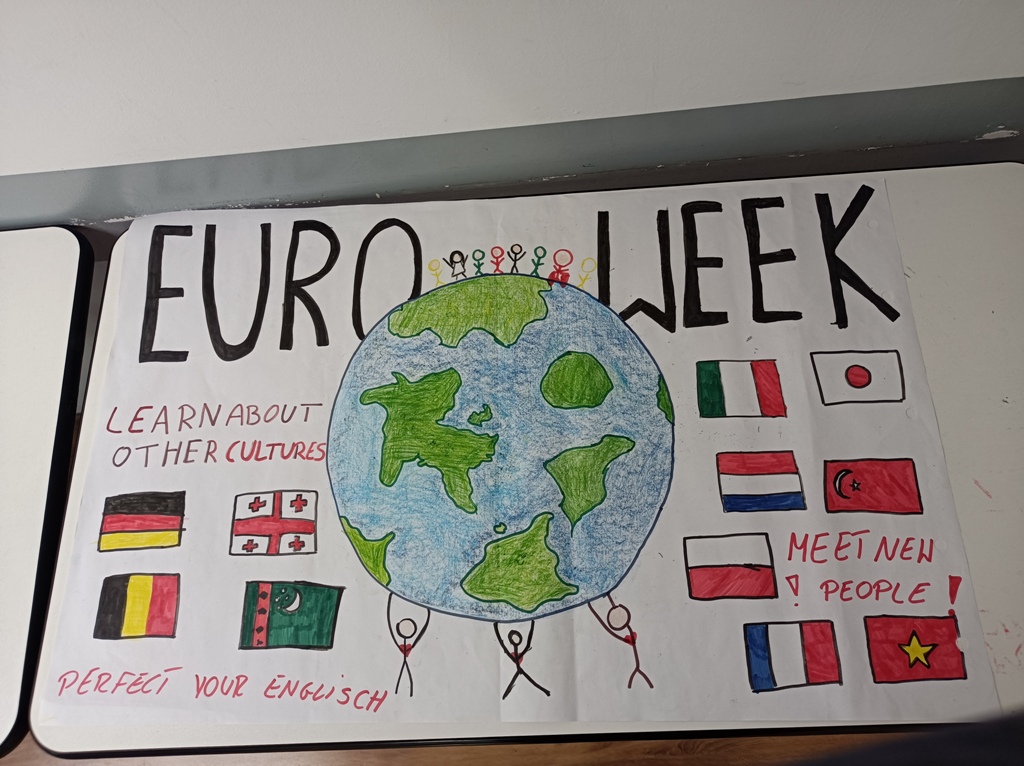 EURO WEEK
LEARN ABOUT
OTHER CULTURES
MEET NEW
! PEOPLE!
PERFECT YOUR ENGLISCH